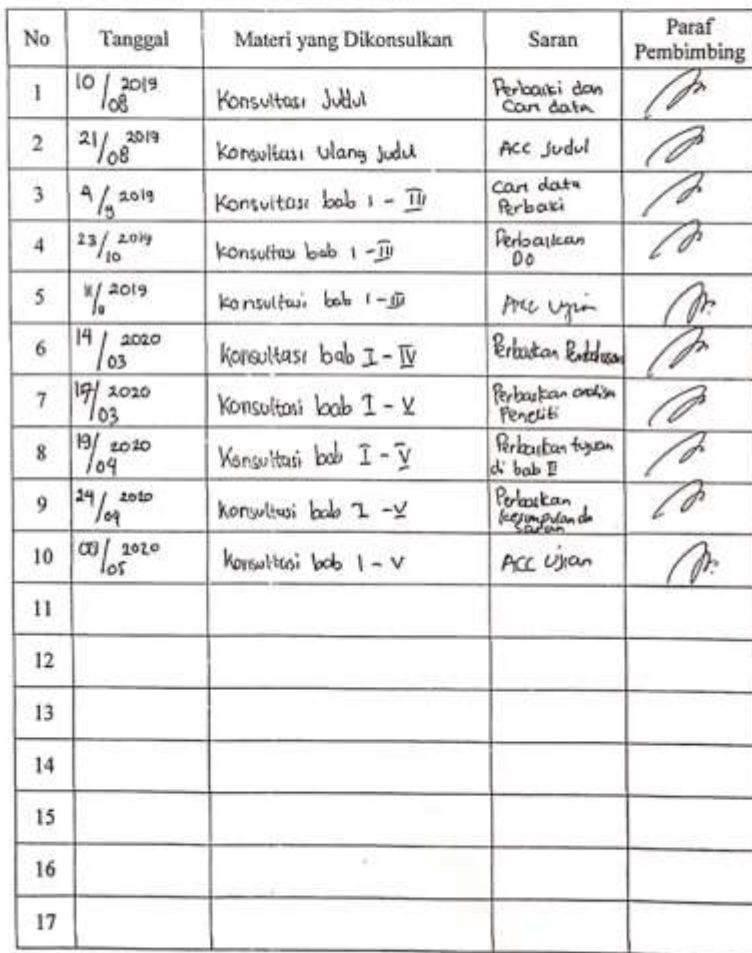 No Tanggal Materi yang Dikonsulkan Saran Paraf Pembimbing
1 10/08 2019 Konsultasi Judul Perbaiki dan Cari data
2 21/08 2019 Konsultasi Ulang Judul ACC Judul
3 4/9 2019 Konsultasi bab I - III Cari data Perbaiki
4 23/10 2019 Konsultasi bab I - III Perbaikan DO
5 2019 Konsultasi bab I - III Acc Ujian
6 14/03 2020 Konsultasi bab I - IV Perbaikan Pembahasan
7 17/03 2020 Konsultasi bab I - V Perbaikan analisa Peneliti
8 19/04 2020 Konsultasi bab I - V Perbaikan tujuan di bab II
9 24/04 2020 Konsultasi bab I - V Perbaikan kesimpulan dn saran
10 /05 2020 Konsultasi bab I - V ACC Ujian
11
12
13
14
15
16
17